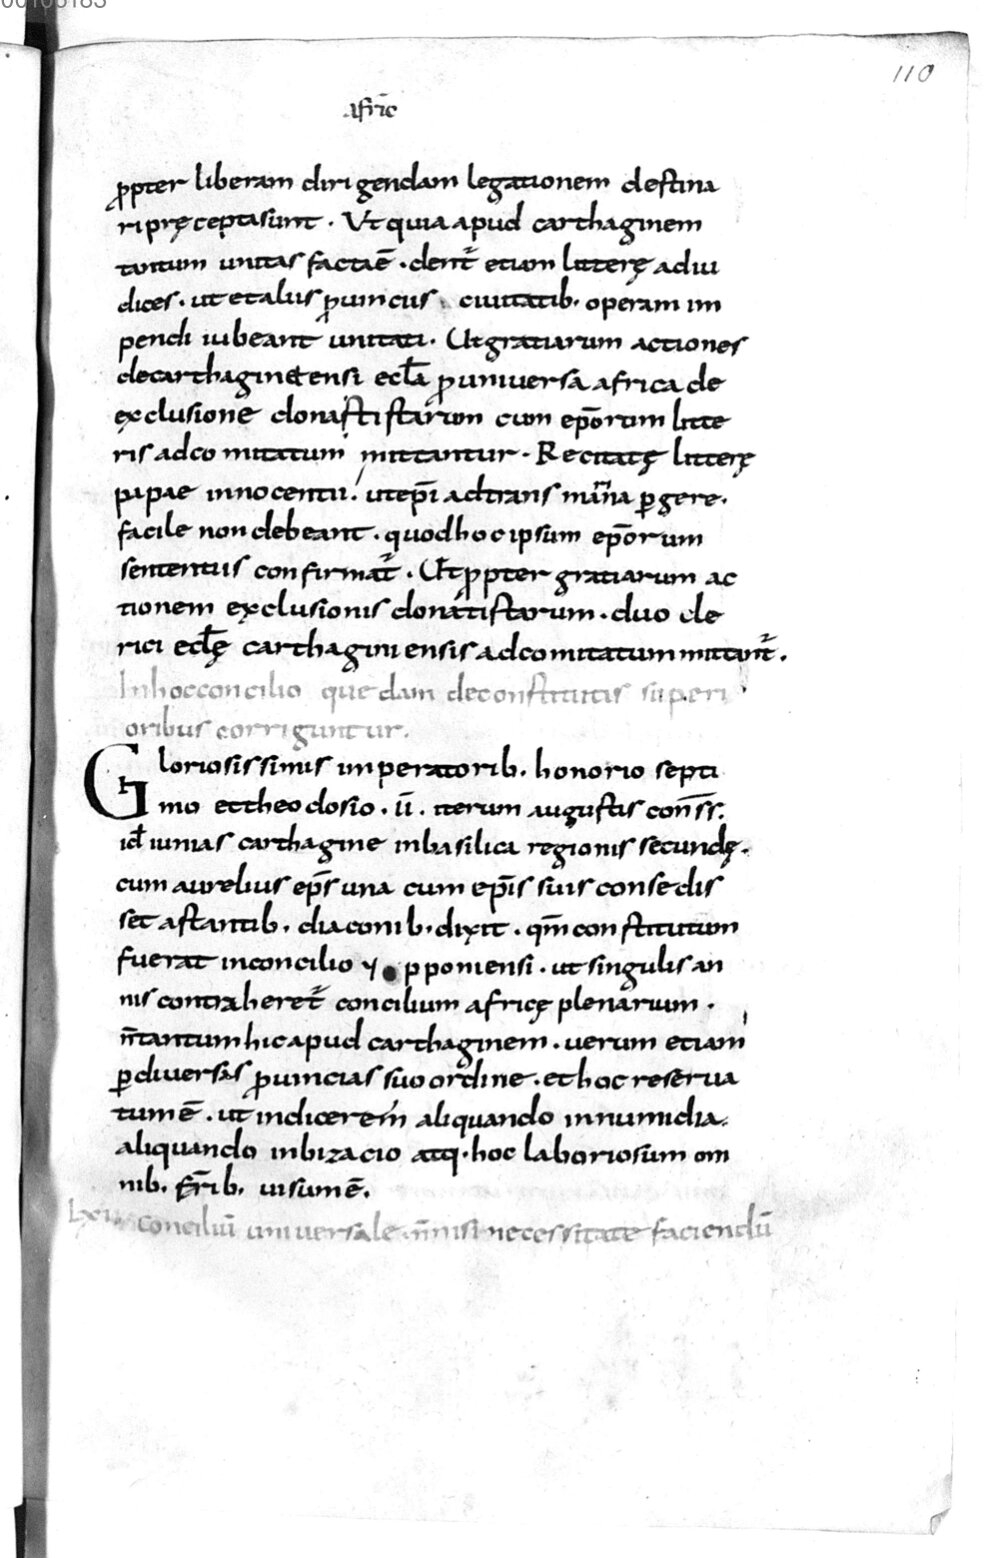 00106183
110
afric̄
ꝓpter liberam dirigendam legationem destina
ri pręcepta sunt · Ut quia apud carthaginem
tantum unitas facta ē · dent᷑ etiam litterę ad iu
dices · ut et aliis ꝓuinciis · ciuitatib · operam im
pendi iubeant unitati · Ut gratiarum actiones
de carthaginetensi eccła ꝓ uniuersa africa de
exclusione donastistarum cum ep̄orum litte
ris ad comitatum mittantur · Recitatę litterę
papae innocentii · ut ep̄i ad trans marina ꝑgere ·
facile non debeant · quod hoc ipsum ep̄orum
sententiis confirmat᷑ · Ut ꝓpter gratiarum ac
tionem exclusionis donatistarum · duo cle
rici eclę carthaginiensis ad comitatum mittant᷑ ·
In hoc concilio que dam de constitutis superi
oribus corriguntur ·
Gloriosissimis imperatorib · honorio septi
mo et theodosio · ii · iterum augustis conss̄ ·
id iunias carthagine in basilica regionis secundę ·
cum aurelius ep̄s una cum ep̄is suis consedis
set astantib · diaconib · dixit · qm̄ constitutum
fuerat in concilio y pponiensi · ut singulis an
nis contraheret᷑ concilium africę plenarium ·
n̄ tantum hic apud carthaginem · uerum etiam
ꝑ diuersas ꝓuincias suo ordine · et hoc reserua
tum ē · ut indicerem aliquando in numidia ·
aliquando in bizacio atq · hoc laboriosum om
nib · fr̄ib · uisum ē ·
conciliū uniuersale · n̄ nisi necessitate faciendū